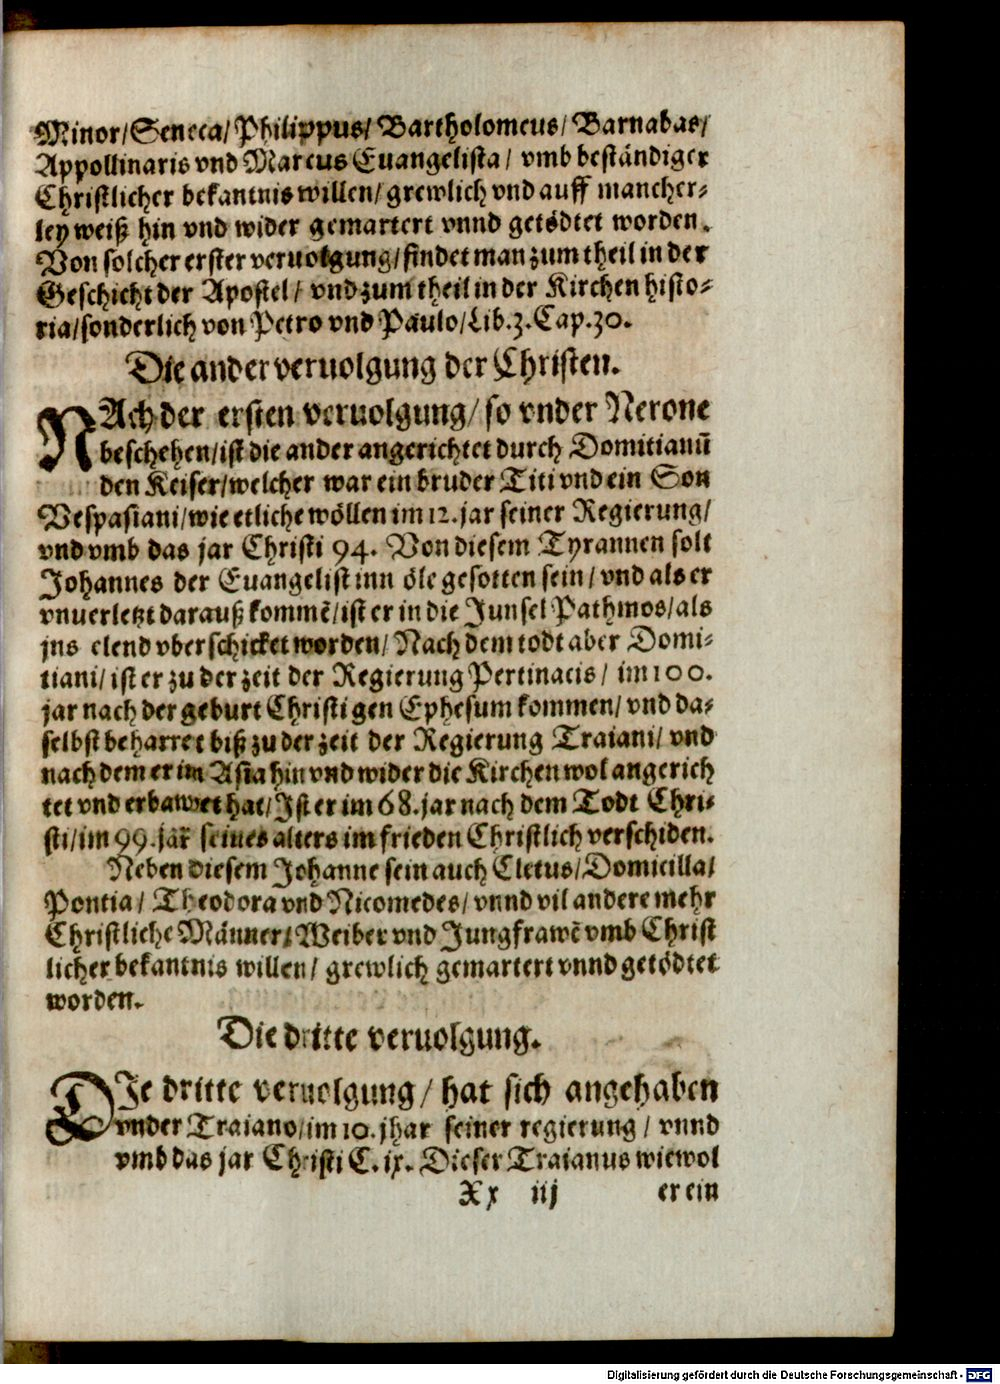 Minor/Seneca/Philippus/Bartholomeus/Barnabas/
Appollinaris vnd Marcus Euangelista/ vmb beständiger
Christlicher bekantnis willen/grewlich vnd auff mancher-
ley weiß hin vnd wider gemartert vnnd getödtet worden.
Von solcher erster veruolgung/findet man zum theil in der
Geschicht der Apostel/ vnd zum theil in der Kirchen histo-
ria/sonderlich von Petro vnd Paulo/Lib.3.Cap.30.
Die ander veruolgung der Christen.
NAch der ersten veruolgung/so vnder Nerone
beschehen/ist die ander angerichtet durch Domitianū
den Keiser/welcher war ein bruder Titi vnd ein Son
Vespasiani/wie etliche wöllen im 12.jar seiner Regierung/
vnd vmb das jar Christi 94. Von diesem Tyrannen solt
Johannes der Euangelist inn öle gesotten sein/vnd als er
vnuerletzt darauß kommē/ist er in die Junsel Pathmos/als
jns elend vberschicket worden/Nach dem todt aber Domi-
tiani/ist er zu der zeit der Regierung Pertinacis/ im 100.
jar nach der geburt Christi gen Ephesum kommen/vnd da-
selbst beharret biß zu der zeit der Regierung Traiani/vnd
nach dem er im Asia hin vnd wider die Kirchen wol angerich
tet vnd erbawet hat/Jst er im 68.jar nach dem Todt Chri-
sti/im 99.jar seines alters im frieden Christlich verschiden.
Neben diesem Johanne sein auch Cletus/Domicilla/
Pontia/ Theodora vnd Nicomedes/vnnd vil andere mehr
Christliche Männer/Weiber vnd Jungfrawē vmb Christ
licher bekantnis willen/ grewlich gemartert vnnd getödtet
worden.
Die dritte veruolgung.
DJe dritte veruolgung/hat sich angehaben
vnder Traiano/im 10.jhar seiner regierung/ vnnd
vmb das jar Christi C.ix. Dieser Traianus wiewol
Xx iij er ein
Digitalisierung gefördert durch die Deutsche Forschungsgemeinschaft - DFG